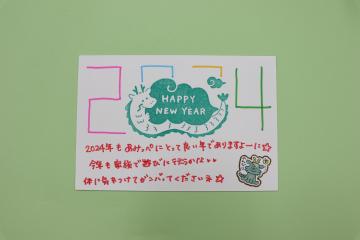 2024
HAPPY
NEW YEAR
2024年もあみっぺにとって良い年でありますよーに☆
今年も家族で遊びに行こうかな
体に気をつけてガンバってくださいネ☆